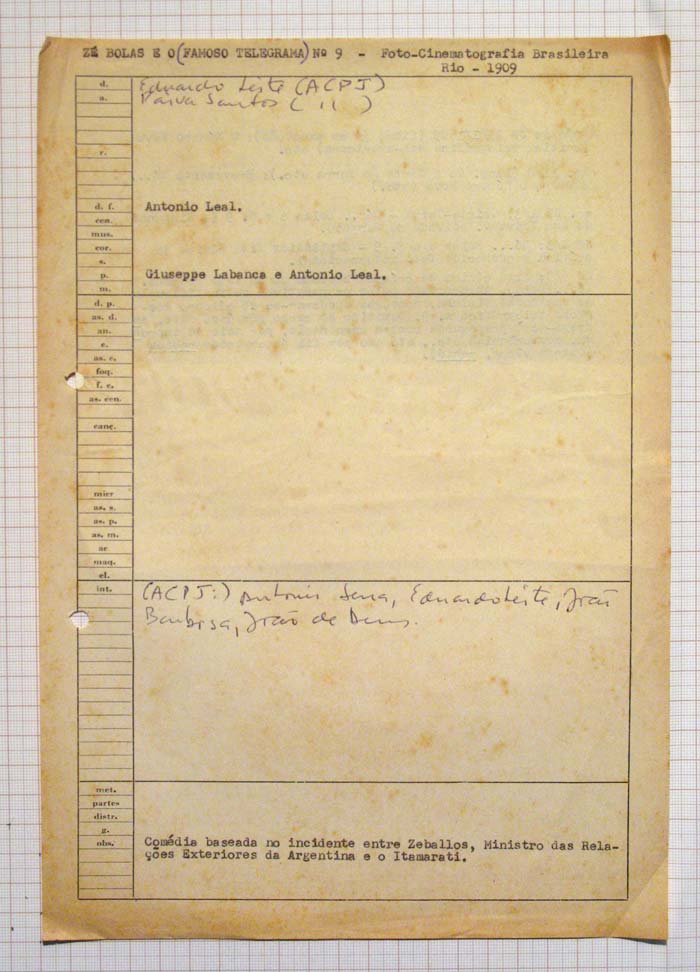 ZÉ BOLAS E O (FAMOSO TELEGRAMA) Nº 9 - Foto-Cinematografia Brasileira
Rio - 1909
d. Eduardo Leite (ACPJ)
a. Paiva Santos ( " )
r.
d. f. Antonio Leal.
cen.
mus.
cor.
s.
p. Giuseppe Labanca e Antonio Leal.
m.
d. p.
as. d.
an.
e.
as. c.
foq.
f. c.
as. cen.
canç.
micr
as. s.
as. p.
as. m.
ac
maq.
el.
int. (ACPJ:) Antonio Serra, Eduardo Leite, João
Barbosa, João de Deus.
met.
partes
distr.
g.
obs. Comédia baseada no incidente entre Zeballos, Ministro das Rela-
ções Exteriores da Argentina e o Itamarati.